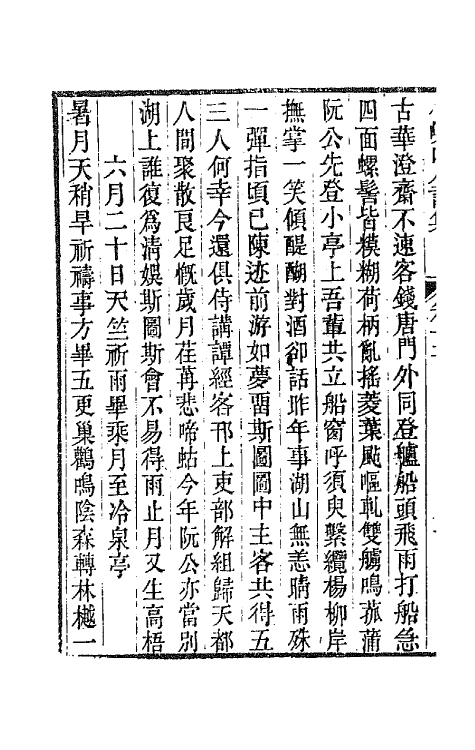 古華澄齋不速客錢唐門外同登艫船頭飛雨打船急
四面螺髻皆模糊荷柄亂搖菱葉颭嘔軋雙艣鳴菰蒲
阮公先登小亭上吾輩共立船窗呼須臾繫纜楊柳岸
撫掌一笑傾醍醐對酒卻話昨年事湖山無恙晴雨殊
一彈指頃已陳迹前游如夢畱斯圖圖中主客共得五
三人何幸今還俱侍講譚經客邗上吏部解組歸天都
人間聚散良足慨歲月荏苒悲啼蛄今年阮公亦當別
湖上誰復爲淸娛斯圖斯會不易得雨止月又生高梧
六月二十日天竺祈雨畢乘月至冷泉亭
暑月天稍旱祈禱事方畢五更巢鸛鳴陰森轉林樾一